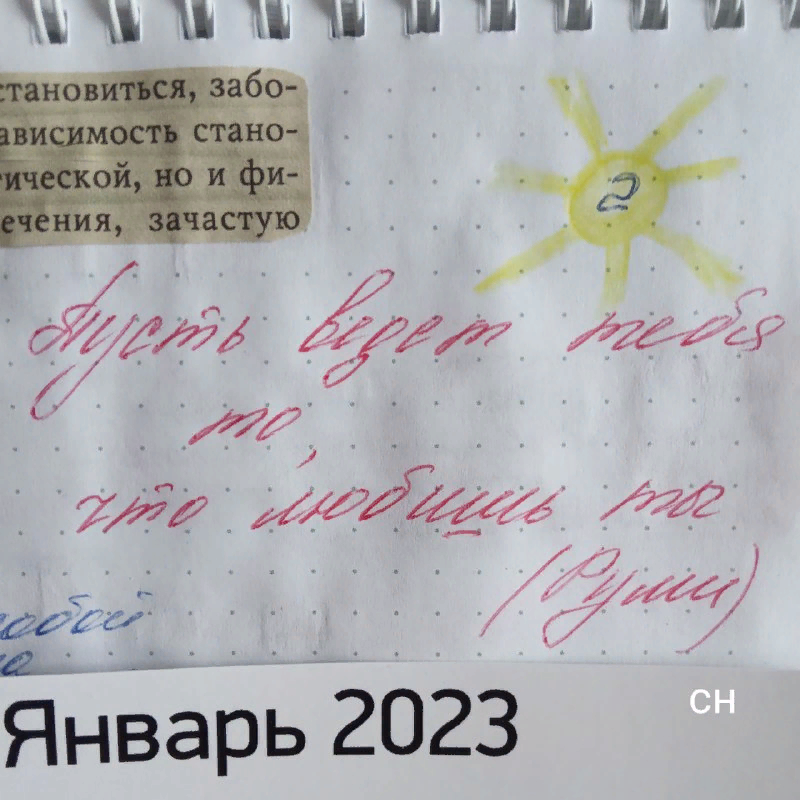 становиться, забо-
ависимость стано-
ической, но и фи-
ечения, зачастую
2
Пусть ведет тебя
то,
что любишь ты
(Руми)
собой
Январь 2023
CH